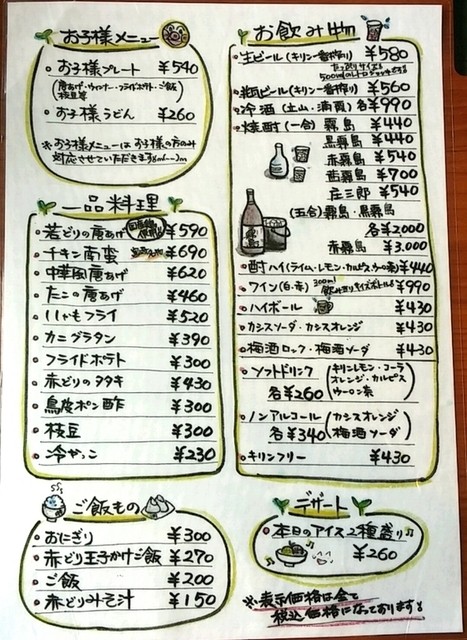 お子様メニュー
・お子様プレート ¥540
(唐あげ・ウィンナー・フライポテト・ご飯・枝豆等)
・お子様うどん ¥260
※お子様メニューはお子様の方のみ
対応させていただきますm(--)m
一品料理
・若どりの唐あげ ¥590
・チキン南蛮 ¥690
・中華風唐あげ ¥620
・たこの唐あげ ¥460
・いももフライ ¥520
・カニグラタン ¥390
・フライドポテト ¥300
・赤どりのタタキ ¥430
・鳥皮ポン酢 ¥300
・枝豆 ¥300
・冷やっこ ¥230
ご飯もの
・おにぎり ¥300
・赤どり玉子かけご飯 ¥270
・ご飯 ¥200
・赤どりみそ汁 ¥150
お飲み物
・生ビール(キリン一番搾り) ¥580
・瓶ビール(キリン一番搾り) ¥560
・冷酒(土山・浦霞)各¥990
・焼酎(一合) 霧島 ¥440
黒霧島 ¥440
赤霧島 ¥540
茜霧島 ¥700
庄三郎 ¥540
(五合)霧島・黒霧島
各¥2000
赤霧島 ¥3,000
・酎ハイ(ライム・レモン・カルピス・ウーロン茶) ¥440
・ワイン(白・赤) 300ml 飲みきりサイズボトル ¥990
・ハイボール ¥430
・カシスソーダ・カシスオレンジ ¥430
・梅酒ロック・梅酒ソーダ ¥430
・ソフトドリンク 各¥260
(キリンレモン・コーラ
オレンジ・カルピス
ウーロン茶)
・ノンアルコール 各¥340
(カシスオレンジ
梅酒ソーダ)
・キリンフリー ¥430
デザート
・本日のアイス2種盛り
¥260
※表示価格は全て
税込価格になっております